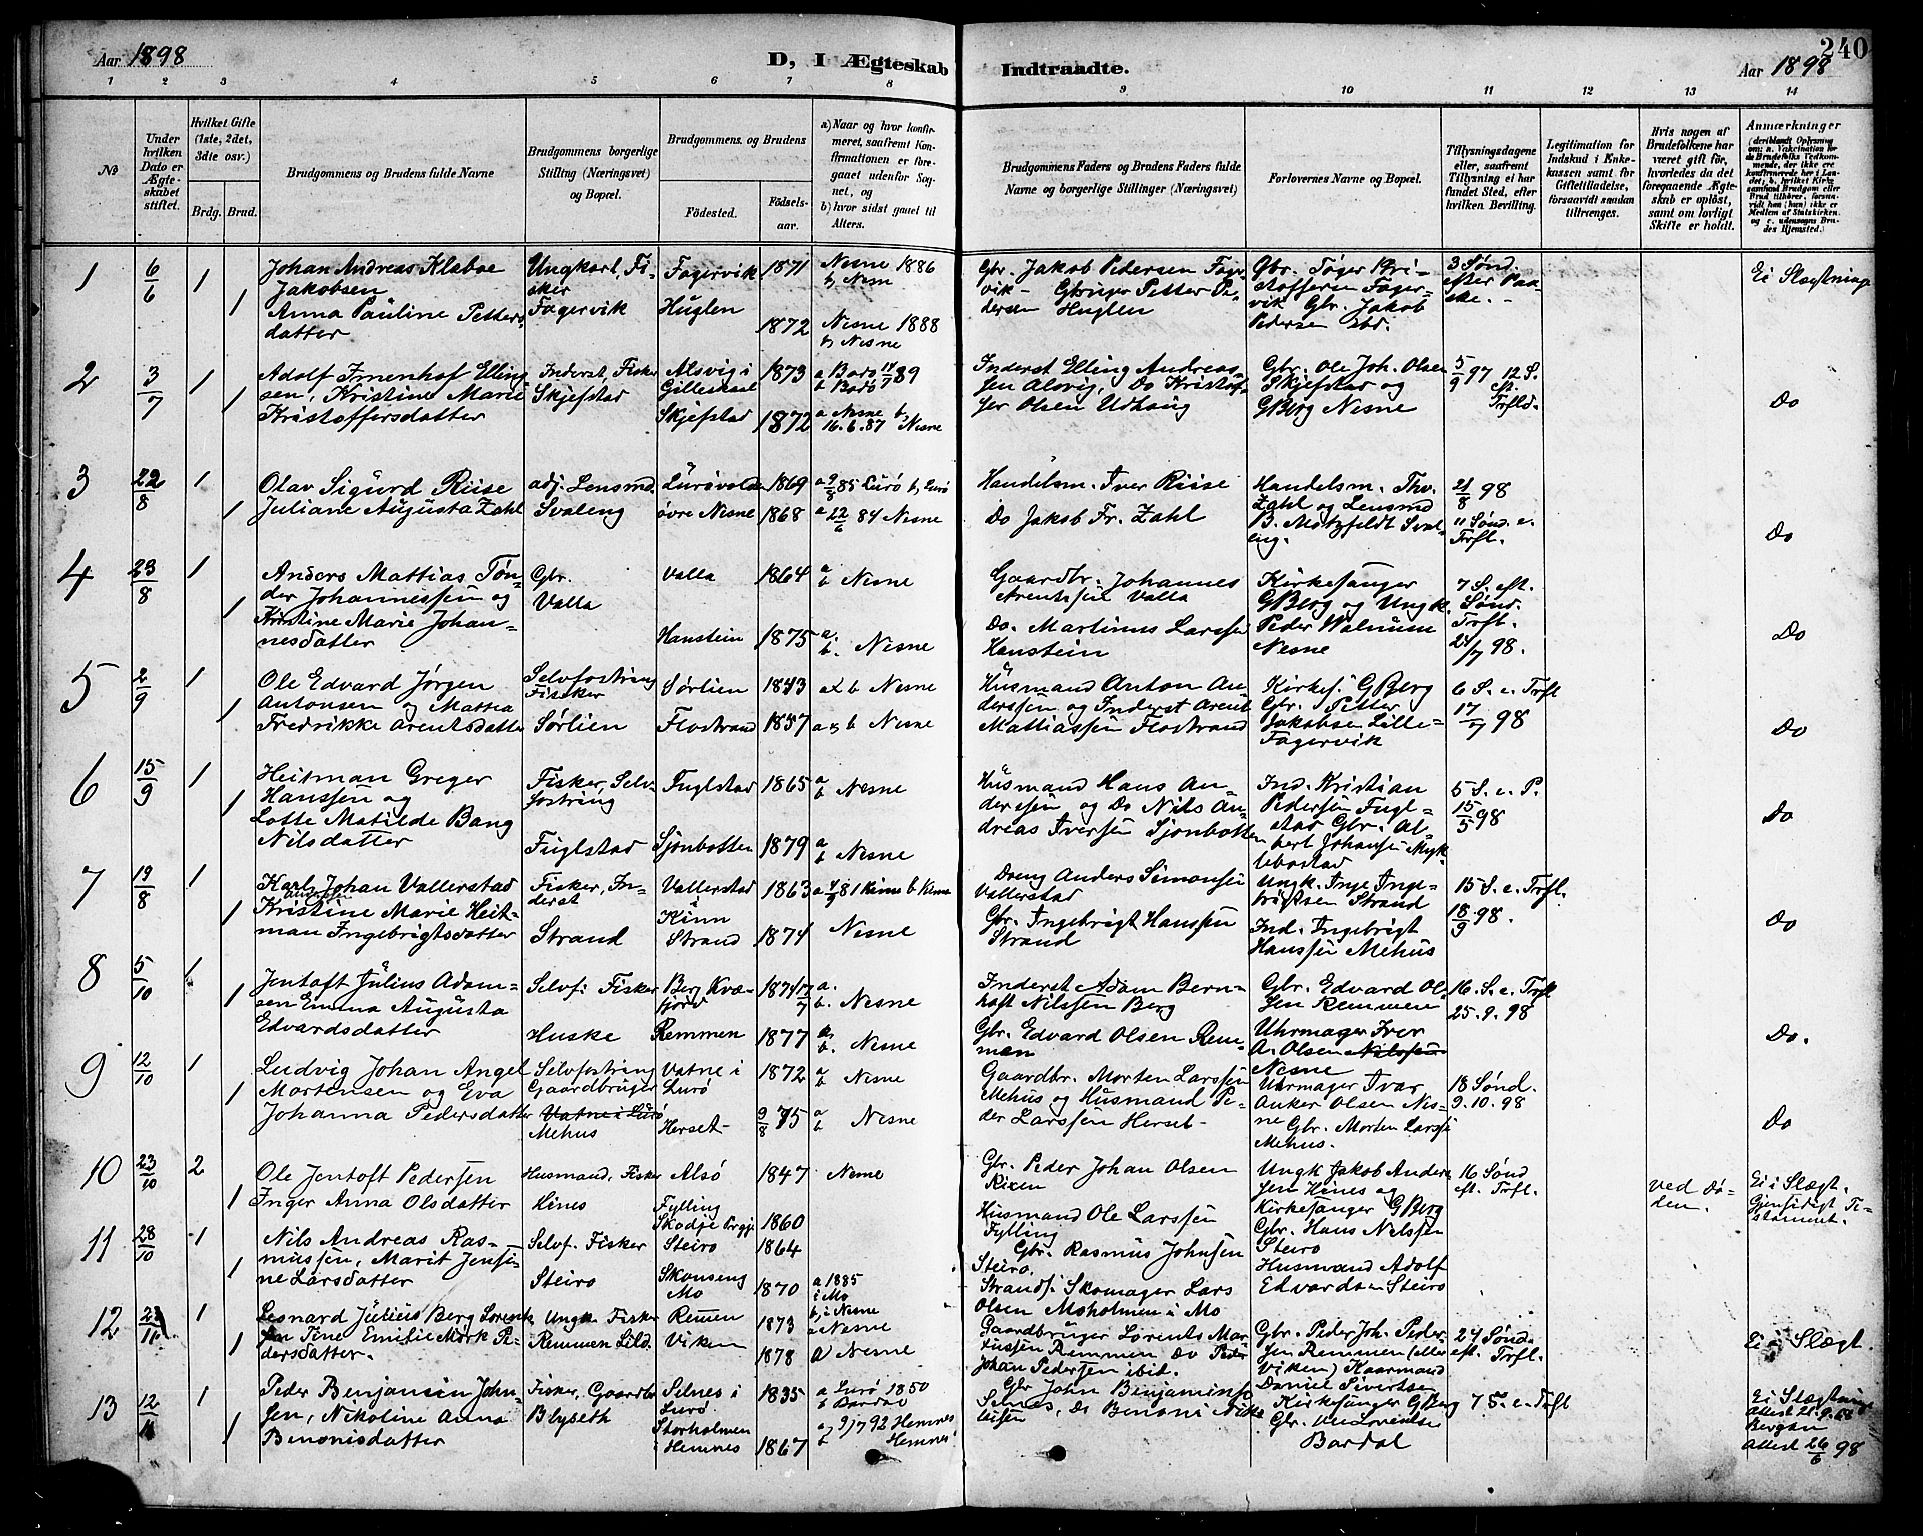 Aar 1898
D, I Ægteskab Indtraadte.
Aar 1898
240
1 2 3 4 5 6 7 8 9 10 11 12 13 14
No
Under hvilken Dato er Ægteskabet stiftet.
Hvilket Gifte (1ste, 2det, 3die osv.)
Brdg. Brud.
Brudgommens og Brudens fulde Navne
Brudgommens borgerlige Stilling (Næringsvei) og Bopæl.
Brudgommens og Brudens
Fødested. Fødselsaar.
a) Naar og hvor konfirmeret, saafremt Konfirmationen er foregaaet udenfor Sognet, og
b) hvor sidst gaaet til Alters.
Brudgommens Faders og Brudens Faders fulde Navne og borgerlige Stillinger (Næringsvei)
Forlovernes Navne og Bopæl.
Tillysningsdagene eller, saafremt Tillysning ei har fundet Sted, efter hvilken Bevilling.
Legitimation for Indskud i Enkekassen samt for Giftetilladelse, forsaavidt saadan tiltrænges.
Hvis nogen af Brudefolkene har været gift før, hvorledes da det foregaaende Ægteskab er opløst, samt om lovligt Skifte er holdt.
Anmærkninger
1 6/6 1
Johan Andreas Klaboe
Jakobsen
1 Anna Pauline Petters-
datter
Ungkarl, Fi-
sker
Fagervik
Fagervik 1871
Huglen 1872
Nesne 1886
b, Nesne
Nesne 1888
b, Nesne
Gbr. Jakob Pedersen Fager-
vik - Gbruger Petter Pe-
dersen Huglen
Gbr. Tøger Kri-
stoffersen Fager-
vik Gbr. Jakob
Pedersen Ebd.
3 Sønd.
efter Paa-
ske.
Ei Slægtninge
2 3/7 1
Adolf Imenhof Elling-
sen, Kristine Marie
1 Kristoffersdatter
Inderst, Fisker
Skjefstad
Alsvig i
Gilleskaal 1873
Skjefstad 1872
a Bodø 14/7 89
b Bodø
a Nesne b,
16.6.87 Nesne
Inderst Elling Andreas-
sen Alsvig, Do Kristof-
fer Olsen Udhaug
Gbr. Ole Joh. Olsen
Skjefstad og
GBerg Nesne
5/9 97 12 S.
eft.
Trfld.
Do
3 22/8 1
Olav Sigurd Riise
1 Juliane Augusta Zahl
adj. Lensmd.
Svaleng
Lurøvolden 1869
øvre Nesne 1868
a 9/8 85 Lurø b, Lurø
a 22/6 84 Nesne
Handelsm. Iver Riise
Do Jakob Fr. Zahl
Handelsm. Thv.
Zahl og Lensmd
B. Motzfeldt Sval-
eng.
21/8 98
11 Sønd. e.
Trfl.
Do
4 23/8 1
Anders Mattias Tøn-
der Johannessen og
1 Kristine Marie Johan-
nesdatter
Gbr.
Valla
Valla 1864
Hanstein 1875
a
b Nesne
a.
b. Nesne
Gaardbr. Johannes
Arentsen Valla
Do. Martinus Larssen
Hanstein
Kirkesanger
GBerg og Ungk.
Peder Walnum
Nesne
7 S. eft.
Sønd.
Trft.
24/7 98.
Do
5 2/9 1
Ole Edvard Jørgen
Antonsen og Mattea
1 Fredrikke Arentsdatter
Selvfostring
Fisker
Sørlien
Sørlien 1843
Flostrand 1857
a & b Nesne
a & b Nesne
Husmand Anton An-
derssen og Inderst Arent
Mattiassen Flostrand
Kirkes. GBerg
Gbr. Petter
Jakobsen Lille-
Fagervik
6 S. e. Trfl
17/7 98
Do
6 15/9 1
Heitman Greger
Hanssen og
1 Lotte Matilde Bang
Nilsdatter
Fisker, Selv-
fostring
Fuglstad
Fuglstad 1865
Sjonbotten 1879
a
b Nesne
a
b Nesne
Husmand Hans An-
dersen og Do Nils An-
dreas Iversen Sjonbotten
Ind. Kristian
Pedersen Fugl-
stad Gbr. Al-
bert Johansen Myk-
lebostad
5 S. e. P.
15/5 98
Do
7 19/8 1
Karl Johan Vallerstad
1 Kristine Marie Heit-
man Ingebrigtsdatter
Fisker, In-
derst
Strand
Vallerstad 1863
i Kinn
Strand 1874
Nesne
Dreng Anders Simonsen
Vallerstad
Gbr. Ingebrigt Hanssen
Strand
Ungk. Inge Inge-
brigtsen Strand
Ind. Ingebrigt
Hanssen Mehus
15 S. e. Trfl.
18/9 98.
Do
8 5/10 1
Jentoft Julius Adam-
1 sen Emma Augusta
Edvardsdatter
Selvf: Fisker
Huske
Berg Kvæ-
fjord
Remmen 1877
a.
b. Nesne
a.
b. Nesne
Inderst Adam Bern-
hoft Nilssen Berg
Gbr. Edvard Olsen Rem-
men
Gbr. Edvard Ol-
sen Remmen
Uhrmager Iver
A. Olsen Nilssen
Nesne
16. S. e. Trfl
25.9.98
Do.
9 12/10 1
Ludvig Johan Angel
1 Mortensen og Eva
Johanna Pedersdatter
Selvfostring
Gaardbruger
Vatne i Lurø
Mehus
Vatne i
Lurø 1872
Herset 9/8 75
a
b Nesne
a
b Nesne
Gaardbr. Morten Larssen
Mehus og Husmand Pe-
der Larssen Herset
Uhrmager Ivar
Anker Olsen Nes-
ne Gbr. Morten Larssen
Mehus.
18 Sønd.
9.10.98
Do
10 23/10 2
Ole Jentoft Pedersen
1 Inger Anna Olsdatter
Husmand, Fisker
Hines
Alsø 1847
Fylling
Skodje Prgj. 1860
Nesne
Gbr. Peder Johan Olsen
Husmand Ole Larssen
Fylling
Ungk Jakob Ander-
sen Hines og
Kirkesanger GBerg
16 Sønd
eft. Trfl.
ved Dø-
den.
Ei i Slægt.
Gjensidigt Te-
stament.
11 28/10 1
Nils Andreas Ras-
mussen, Marit Jensi-
1 ne Larsdatter
Selvf. Fisker
Steiro
Steiro 1864
Skonseng
Mo 1870
a 1885
i Mo
b, i Nesne
Gbr. Rasmus Johnsen
Steiro.
Strands. Skomager Lars
Olsen Moholmen i Mo
Gbr. Hans Nelssen
Steiro
Husmand Adolf
Edvardsen Steiro
12 1
Leonard Julius Berg Lorent-
1 sen Tine Emilie Mørk Pe-
dersdatter.
Ungk. Fisker
Remmen
Remen 1873
Viken 1878
a Nesne
a Nesne
Gaardbruger Lorents Mar-
tussen Remmen Do Peder
Johan Pedersen ibid.
Gbr. Peder Joh. Peder-
sen Remmen (eller
Viken) Kaarmand
Daniel Sivertsen
24 Sønd.
eft. Trfl.
Ei i Slægt.
13 12/11 1
Peder Benjamin John-
sen, Nikoline Anna
1 Benonisdatter
Fisker, Gaardbr
Blyseth
Selnes i
Lurø 1835
Storholmen
i Hemnes 1867
a Lurø 1850
b Bardal
a 9/7 92 Hemnes
b Hemnes
Gbr John Benjaminsen
Selnes, Do Benoni
Kirkesanger GBerg
Gbr.
Bardal
7 S. e. Trfl
Ei Slægtninge
Attest
Bergen
Attest 26/6 98